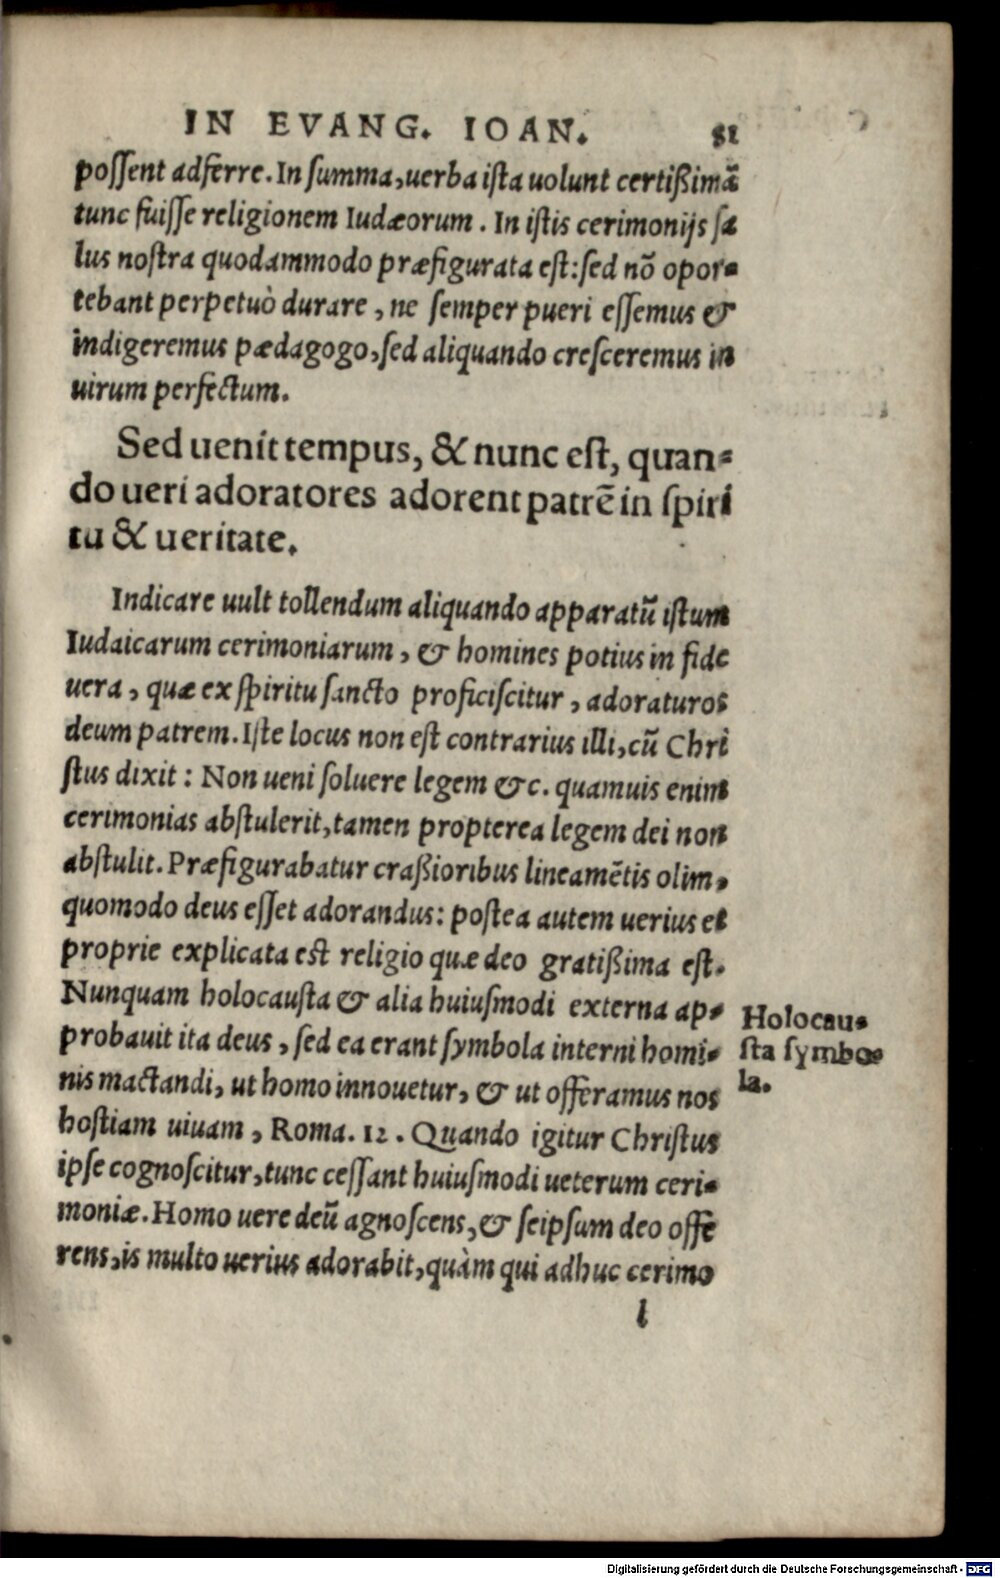 IN EVANG. IOAN. 81
possent adferre. In summa, uerba ista uolunt certißimā
tunc fuisse religionem Iudæorum. In istis cerimonijs sa
lus nostra quodammodo præfigurata est: sed nō opor-
tebant perpetuò durare, ne semper pueri essemus &
indigeremus pædagogo, sed aliquando cresceremus in
uirum perfectum.
Sed uenit tempus, & nunc est, quan-
do ueri adoratores adorent patrē in spiri
tu & ueritate.
Indicare uult tollendum aliquando apparatū istum
Iudaicarum cerimoniarum, & homines potius in fide
uera, quæ ex spiritu sancto proficiscitur, adoraturos
deum patrem. Iste locus non est contrarius illi, cū Chri
stus dixit: Non ueni soluere legem &c. quamuis enim
cerimonias abstulerit, tamen propterea legem dei non
abstulit. Præfigurabatur craßioribus lineamētis olim,
quomodo deus esset adorandus: postea autem uerius et
proprie explicata est religio quæ deo gratißima est.
Nunquam holocausta & alia huiusmodi externa ap-
probauit ita deus, sed ea erant symbola interni homi-
nis mactandi, ut homo innouetur, & ut offeramus nos
hostiam uiuam, Roma. 12. Quando igitur Christus
ipse cognoscitur, tunc cessant huiusmodi ueterum ceri-
moniæ. Homo uere deū agnoscens, & seipsum deo offe
rens, is multo uerius adorabit, quàm qui adhuc cerimo
Holocau-
sta symbo-
la.
l
Digitalisierung gefördert durch die Deutsche Forschungsgemeinschaft - DFG